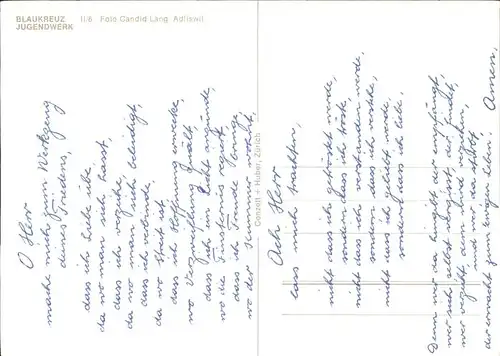 BLAUKREUZ II/6 Foto Candid Lang, Adliswil
JUGENDWERK
O Herr
mache mich zum Werkzeug
deines Friedens,
dass ich Liebe übe
da wo man sich hasst,
dass ich verzeihe,
da wo man sich beleidigt,
dass ich verbinde,
da wo Streit ist
dass ich Hoffnung erwecke,
wo Verzweiflung quält,
dass ich ein Licht anzünde,
wo die Finsternis regiert,
dass ich Freude bringe,
wo der Kummer wohnt,
Conzett + Huber, Zürich
Ach Herr
lass mich trachten,
nicht dass ich getröstet werde,
sondern dass ich tröste,
nicht dass ich verstanden werde,
sondern dass ich verstehe,
nicht dass ich geliebt werde,
sondern dass ich liebe,
Denn wer da hingibt, der empfängt,
wer sich selbst vergisst, der findet,
wer vergibt, dem wird vergeben,
und wer da stirbt
der erwacht zum ewigen Leben.
Amen,